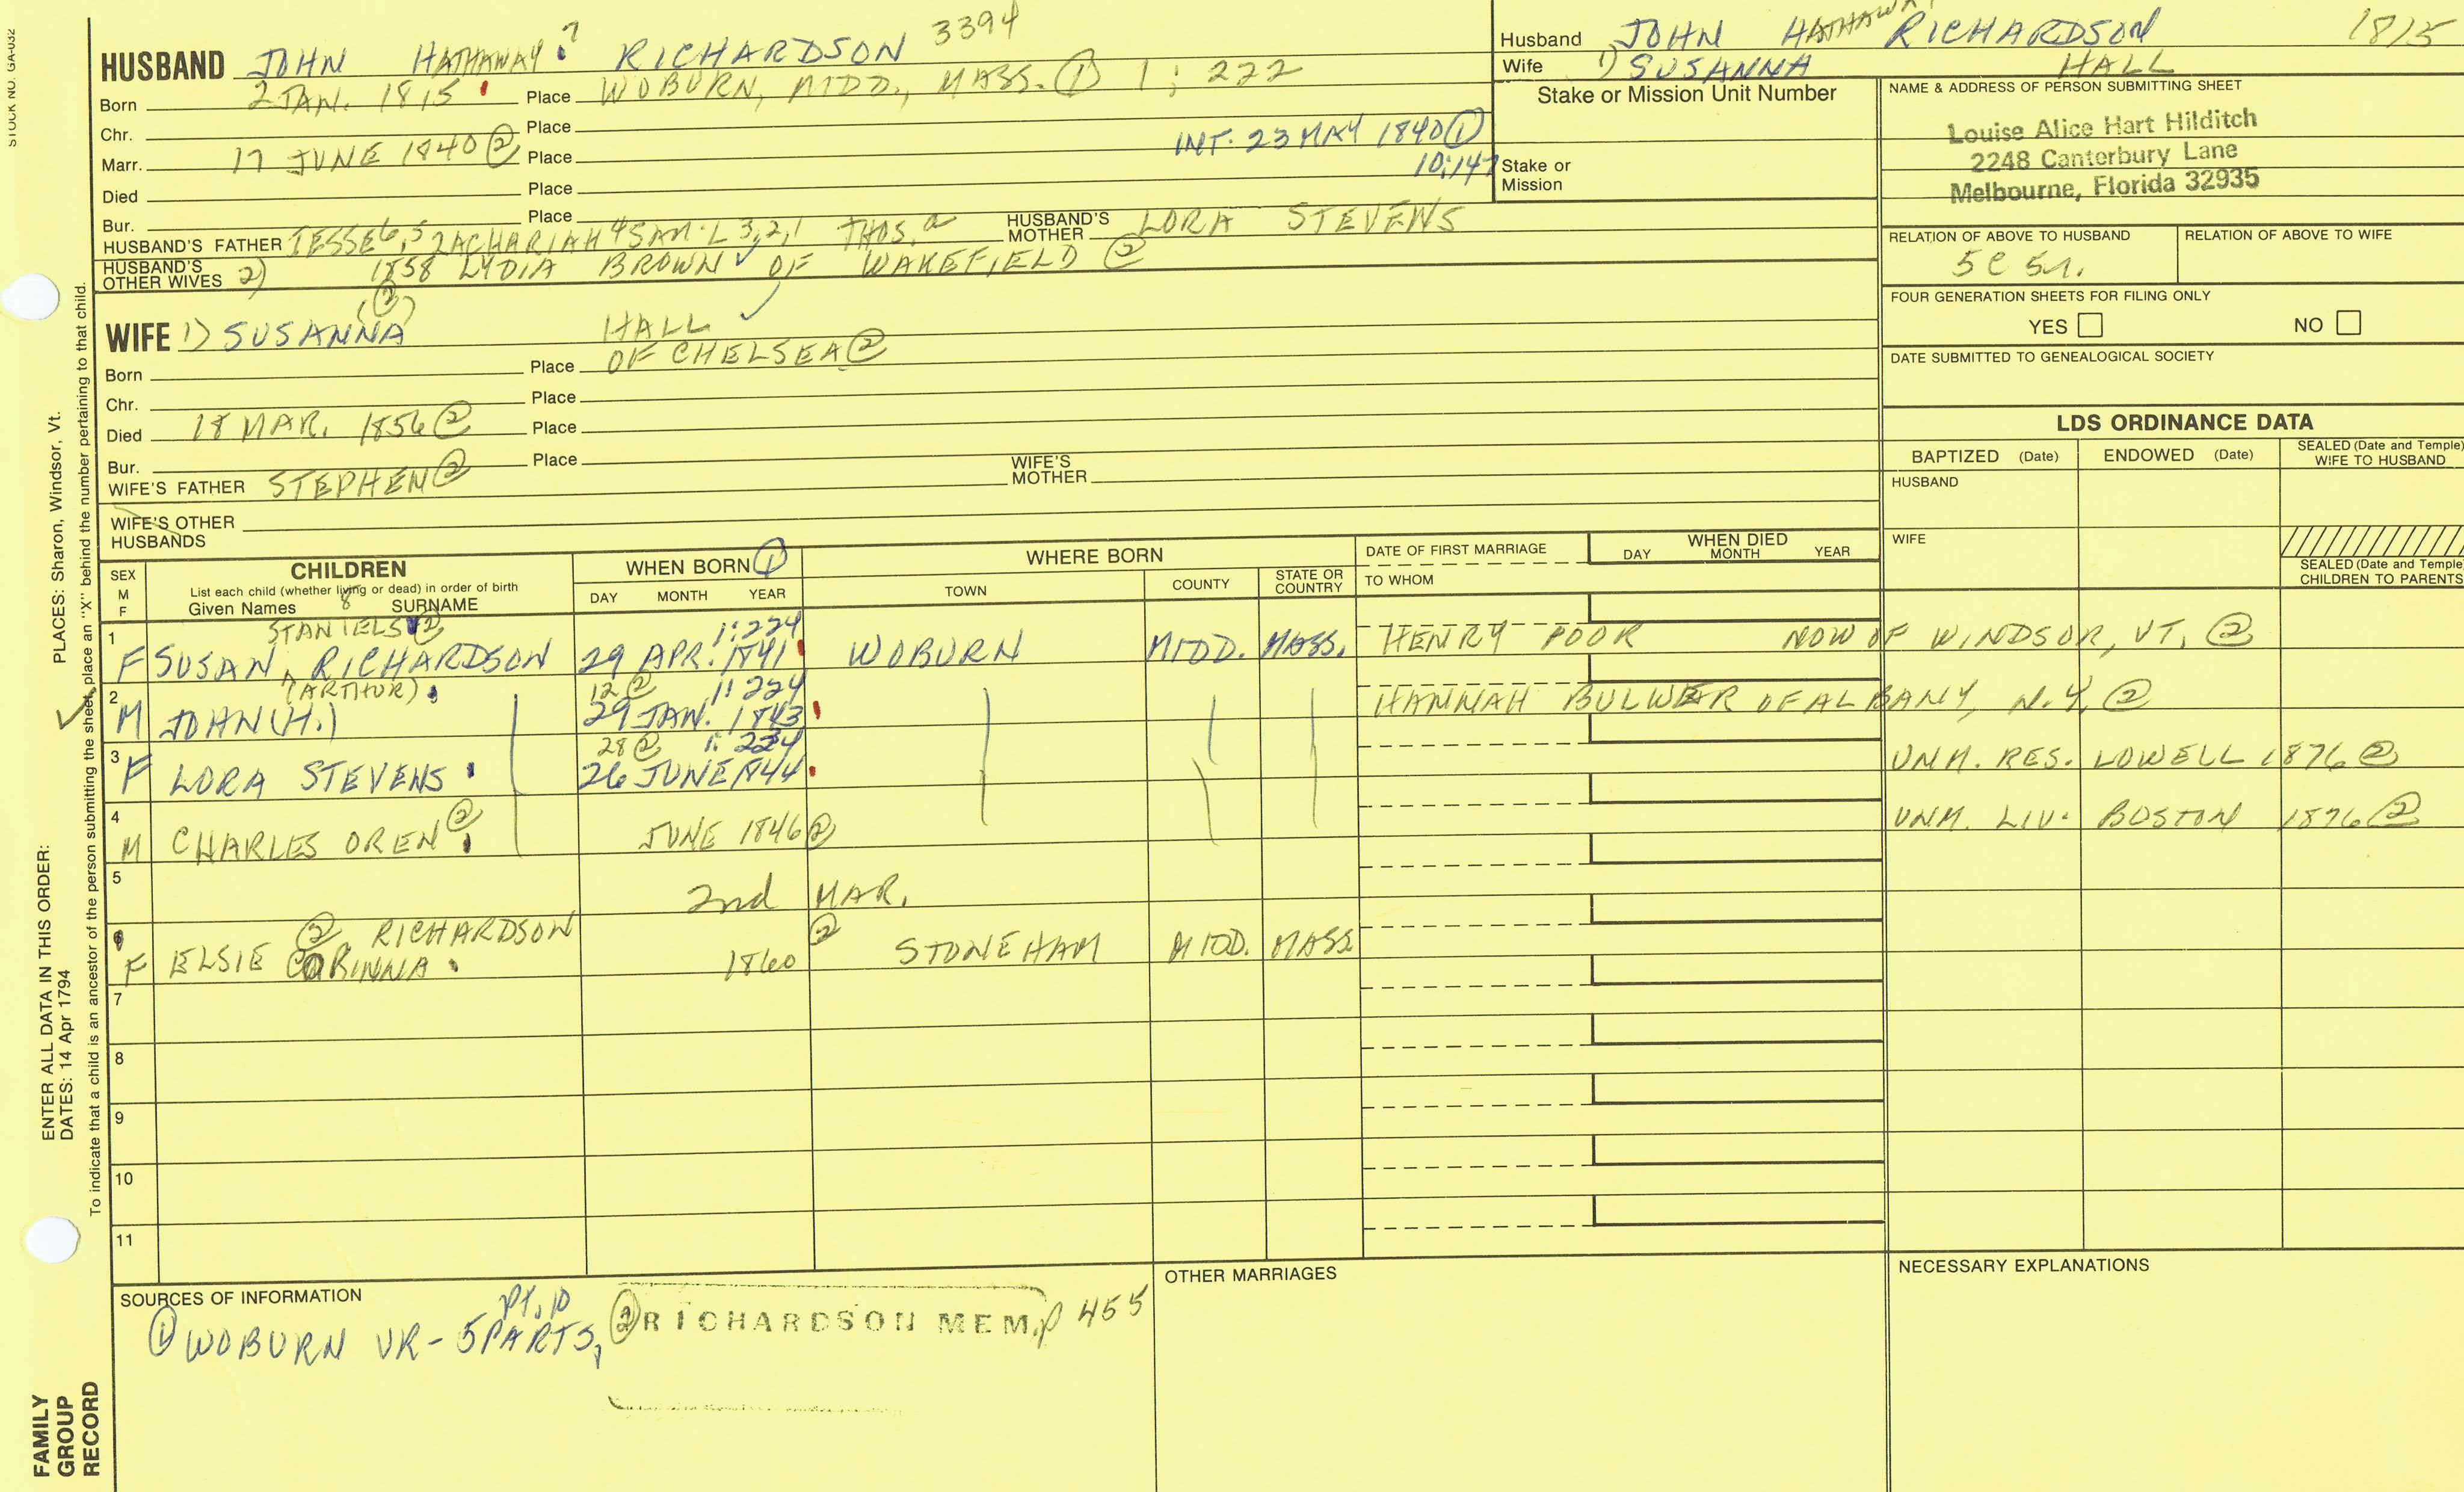 STOCK NO. GA-032
HUSBAND JOHN HATHAWAY? RICHARDSON 3394
Born 2 JAN. 1815 Place WOBURN, MIDD., MASS. ① 1; 222
Chr. Place
INT. 23 MAY 1840 ①
Marr. 17 JUNE 1840 ② Place
10:147
Died Place
Bur. Place
HUSBAND'S FATHER JESSE 6,5 ZACHARIAH 4 SAM'L 3,2,1 THOS. a HUSBAND'S MOTHER LORA STEVENS
HUSBAND'S OTHER WIVES 2) 1858 LYDIA BROWN ✓ OF WAKEFIELD ②
(②)
WIFE 1) SUSANNA HALL ✓
Born Place OF CHELSEA ②
Chr. Place
Died 18 MAR. 1856 ② Place
Bur. Place
WIFE'S FATHER STEPHEN ② WIFE'S MOTHER
WIFE'S OTHER HUSBANDS
Husband JOHN HATHAWAY RICHARDSON 1815
Wife 1) SUSANNA HALL
Stake or Mission Unit Number
Stake or Mission
NAME & ADDRESS OF PERSON SUBMITTING SHEET
Louise Alice Hart Hilditch
2248 Canterbury Lane
Melbourne, Florida 32935
RELATION OF ABOVE TO HUSBAND RELATION OF ABOVE TO WIFE
5C 5r.
FOUR GENERATION SHEETS FOR FILING ONLY
YES NO
DATE SUBMITTED TO GENEALOGICAL SOCIETY
LDS ORDINANCE DATA
BAPTIZED (Date) ENDOWED (Date) SEALED (Date and Temple) WIFE TO HUSBAND
HUSBAND
WIFE
SEALED (Date and Temple) CHILDREN TO PARENTS
SEX M F CHILDREN WHEN BORN ① WHERE BORN DATE OF FIRST MARRIAGE WHEN DIED
List each child (whether living or dead) in order of birth
Given Names 8 SURNAME DAY MONTH YEAR TOWN COUNTY STATE OR COUNTRY TO WHOM DAY MONTH YEAR
STANIELS ② 1:224
1 F SUSAN ^ RICHARDSON 29 APR. 1841 WOBURN MIDD. MASS. HENRY POOR NOW OF WINDSOR, VT. ②
(ARTHUR) 12 ② 1:224
2 M JOHN (H.) 29 JAN. 1843 HANNAH BULWER OF ALBANY, N.Y. ②
28 ② 1:224
3 F LORA STEVENS 26 JUNE 1844 UNM. RES. LOWELL 1876 ②
4 M CHARLES OREN ② JUNE 1846 ② UNM. LIV. BOSTON 1876 ②
5 2nd MAR.
② RICHARDSON ②
6 F ELSIE CORINNA 1860 STONEHAM MIDD. MASS
7
8
9
10
11
SOURCES OF INFORMATION
PT. 10
① WOBURN VR - 5 PARTS, ② RICHARDSON MEM. p 455
OTHER MARRIAGES
NECESSARY EXPLANATIONS
PLACES: Sharon, Windsor, Vt.
To indicate that a child is an ancestor of the person submitting the sheet, place an "X" behind the number pertaining to that child.
ENTER ALL DATA IN THIS ORDER:
DATES: 14 Apr 1794
FAMILY
GROUP
RECORD